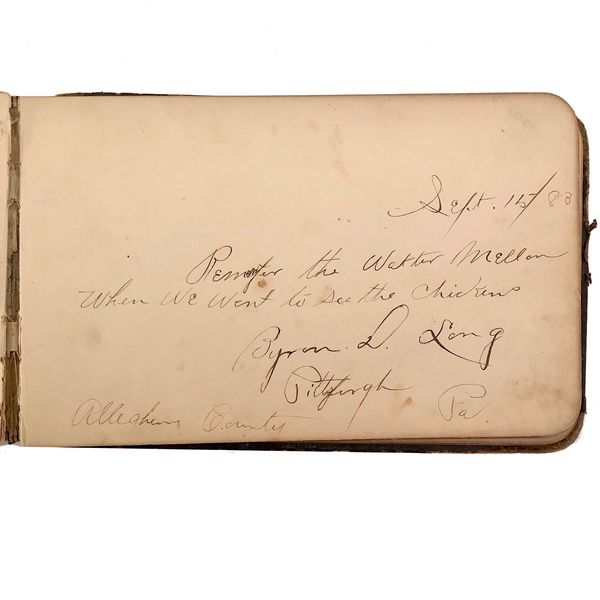 Sept. 15/83
Remember the Watter Mellon
When We Went to see the Chickens
Byron. D. Long
Pittsburgh
Pa.
Allegheny County